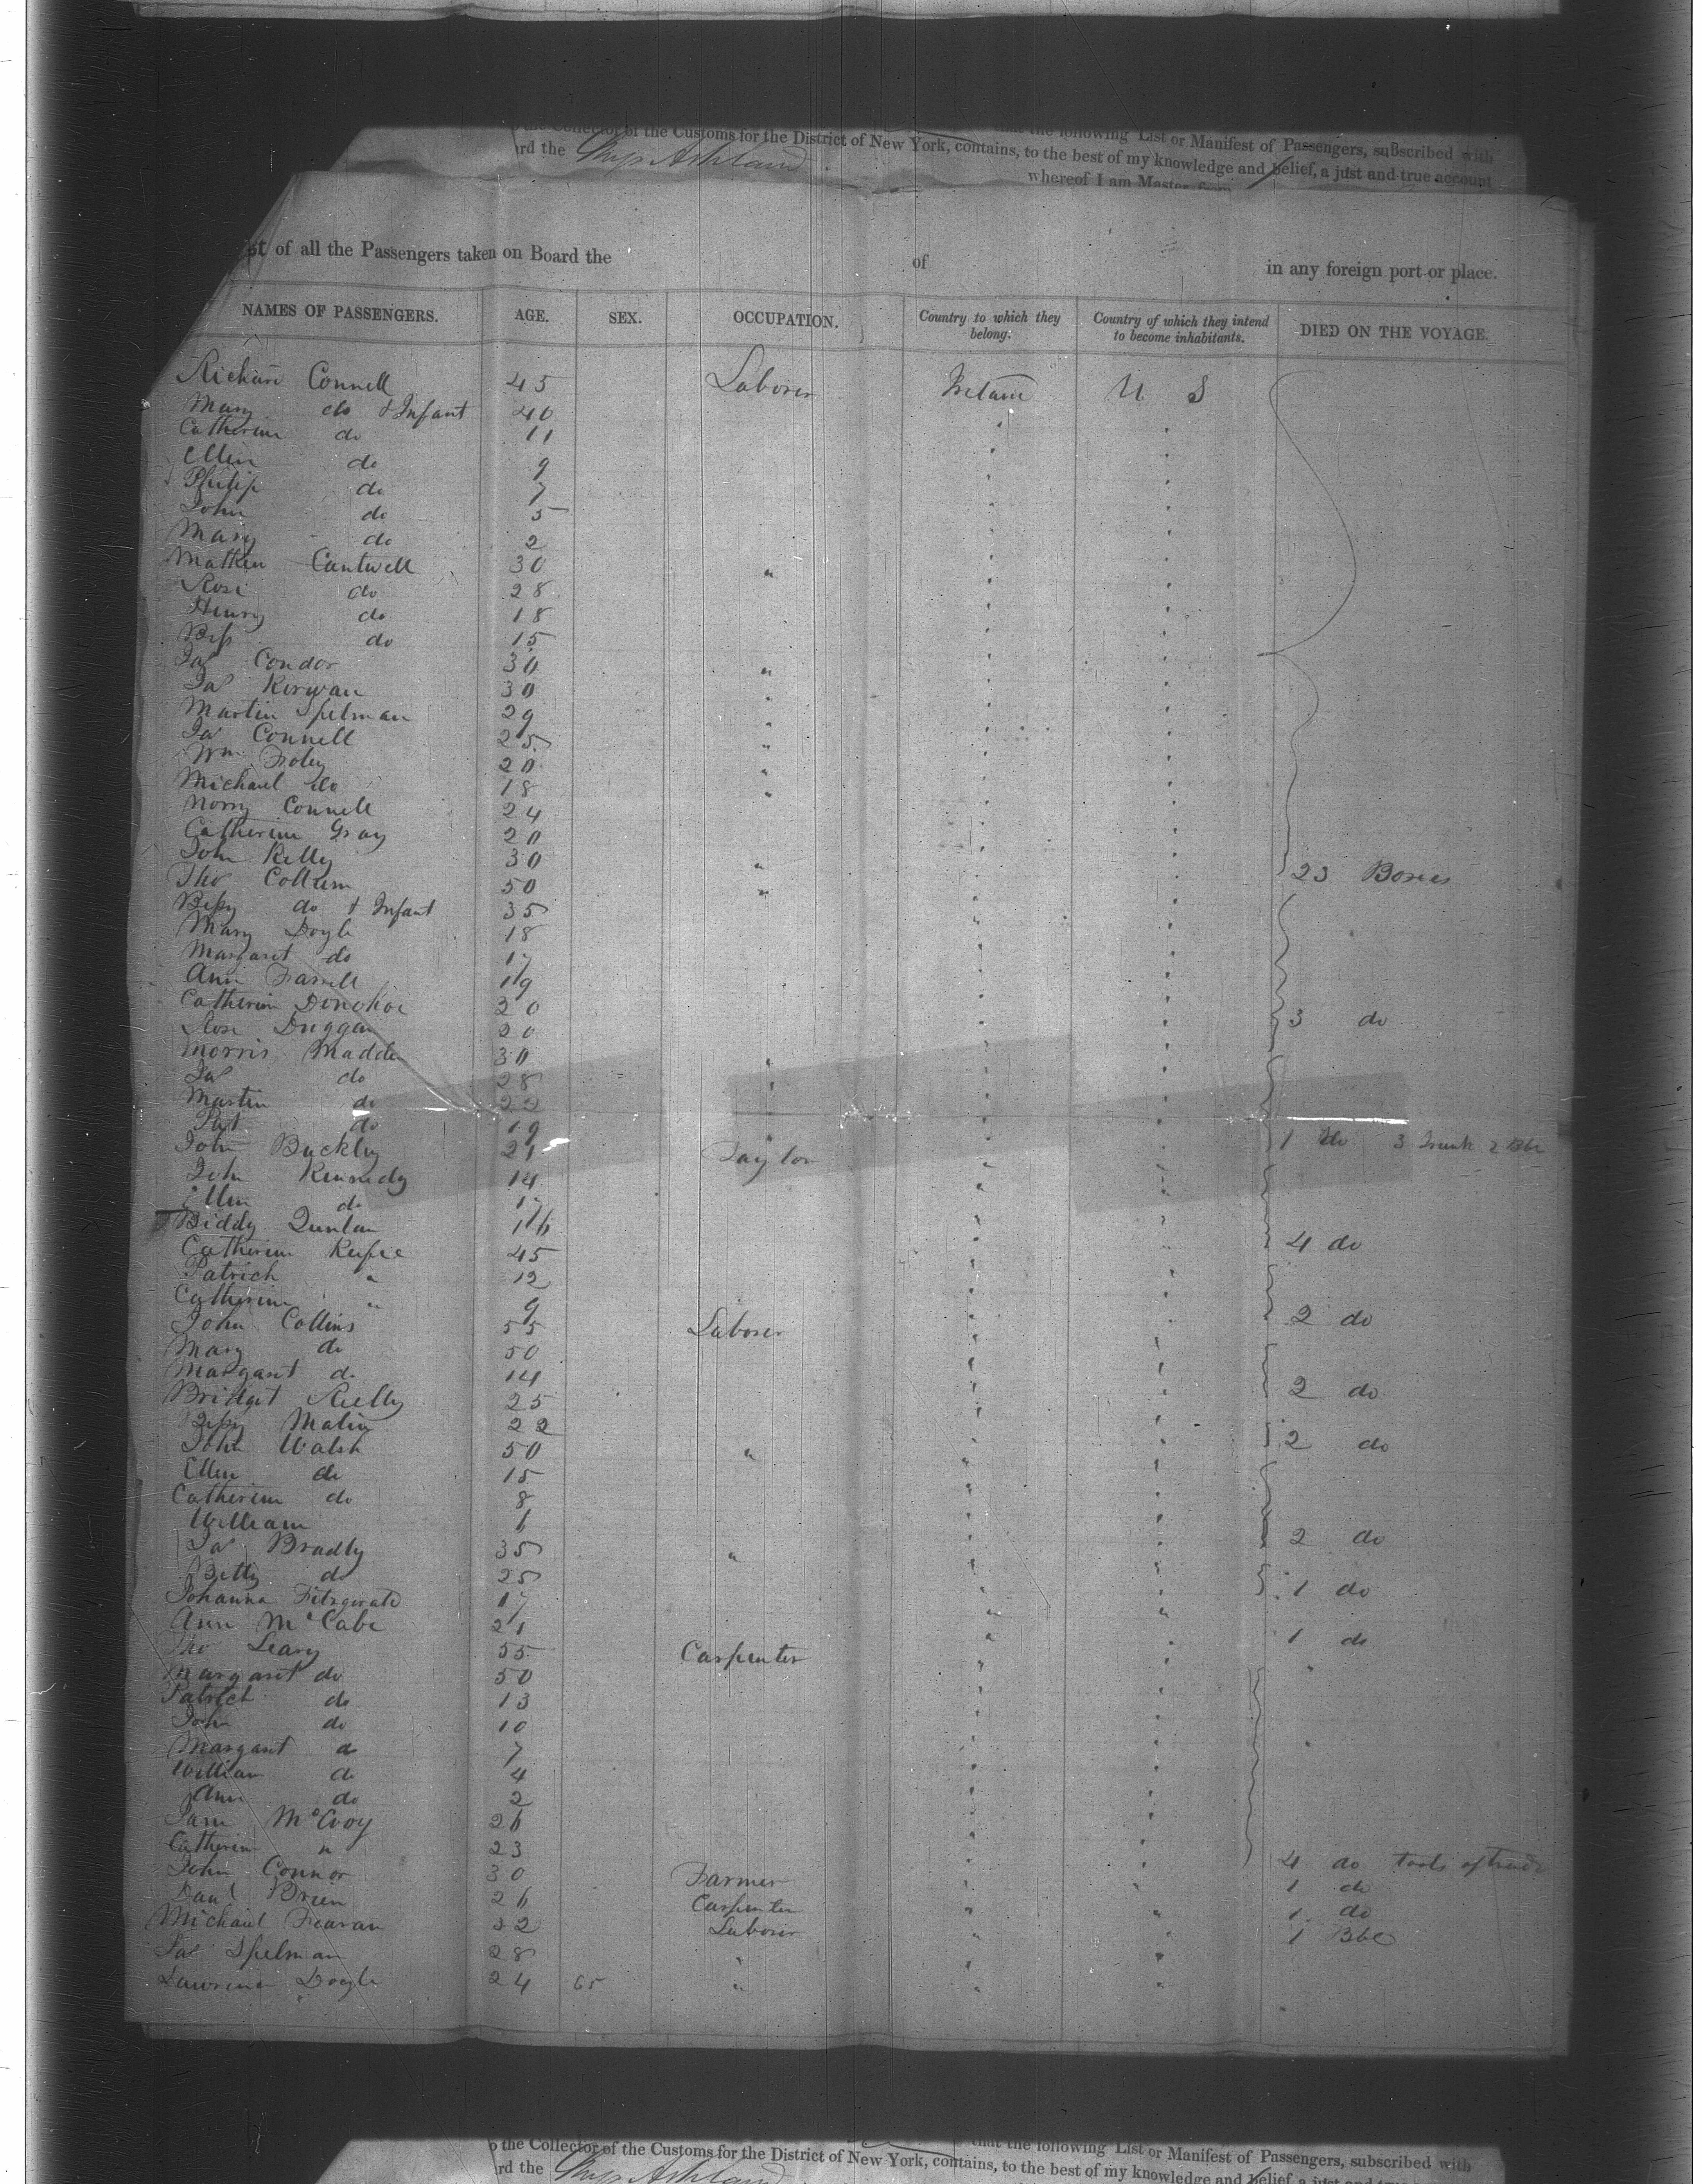 the Collector of the Customs for the District of New York, contains, to the best of my knowledge and belief, a just and true account
that the following List or Manifest of Passengers, subscribed with
rd the Ship Ashland
whereof I am Master, from
st of all the Passengers taken on Board the of in any foreign port or place.
NAMES OF PASSENGERS. AGE. SEX. OCCUPATION. Country to which they belong. Country of which they intend to become inhabitants. DIED ON THE VOYAGE.
Richard Connell 45 Laborer Ireland U S
Mary do & Infant 40
Catherine do 11
Ellen do 9
Philip do 7
John do 5
Mary do 2
Mathew Cantwell 30 "
Rose do 28
Henry do 18
Bess do 15
Jas Condor 30 "
Jas Kirwan 30 "
Martin Spelman 29 "
Jas Connell 25 "
Wm Foley 20 "
Michael do 18 "
Norry Connell 24
Catherine Gray 20
John Kelly 30 " 23 Boxes
Thos Collum 50 "
Bessy do & Infant 35
Mary Doyle 18
Margaret do 17
Ann Farrell 19
Catherine Donohoe 20
Rose Duggan 20 3 do
Morris Madden 30 "
Jas do 28 "
Martin do 22
Pat do 19 "
John Buckley 21 Taylor 1 do 3 Trunk 2 Bbl
John Kennedy 14
Ellen do 17
Biddy Quinlan 16
Catherine Keefee 45 4 do
Patrick " 12
Catherine " 9
John Collins 55 Laborer 2 do
Mary do 50
Margaret do 14
Bridget Reilly 25 2 do
Bessy 22
John Walsh 50 " 2 do
Ellen do 15
Catherine do 8
William
Jas Bradly 35 " 2 do
Betty do 25
Johanna Fitzgerald 17 1 do
Ann McCabe 21
Thos Leary 55 Carpenter 1 do
Margaret do 50
Patrick do 13
John do 10
Margaret do 7
William do 4
Ann do 2
McEvoy 26
Catherine " 23
John Connor 30 Farmer 4 do tools of trade
Danl Brien 26 Carpenter 1 do
Michael 22 Laborer 1 do
Jas Spelman 28 " 1 Bbl
Lawrence Doyle 24 65 "
the Collector of the Customs for the District of New York, contains, to the best of my knowledge and belief, a just and true
that the following List or Manifest of Passengers, subscribed with
rd the Ship Ashland